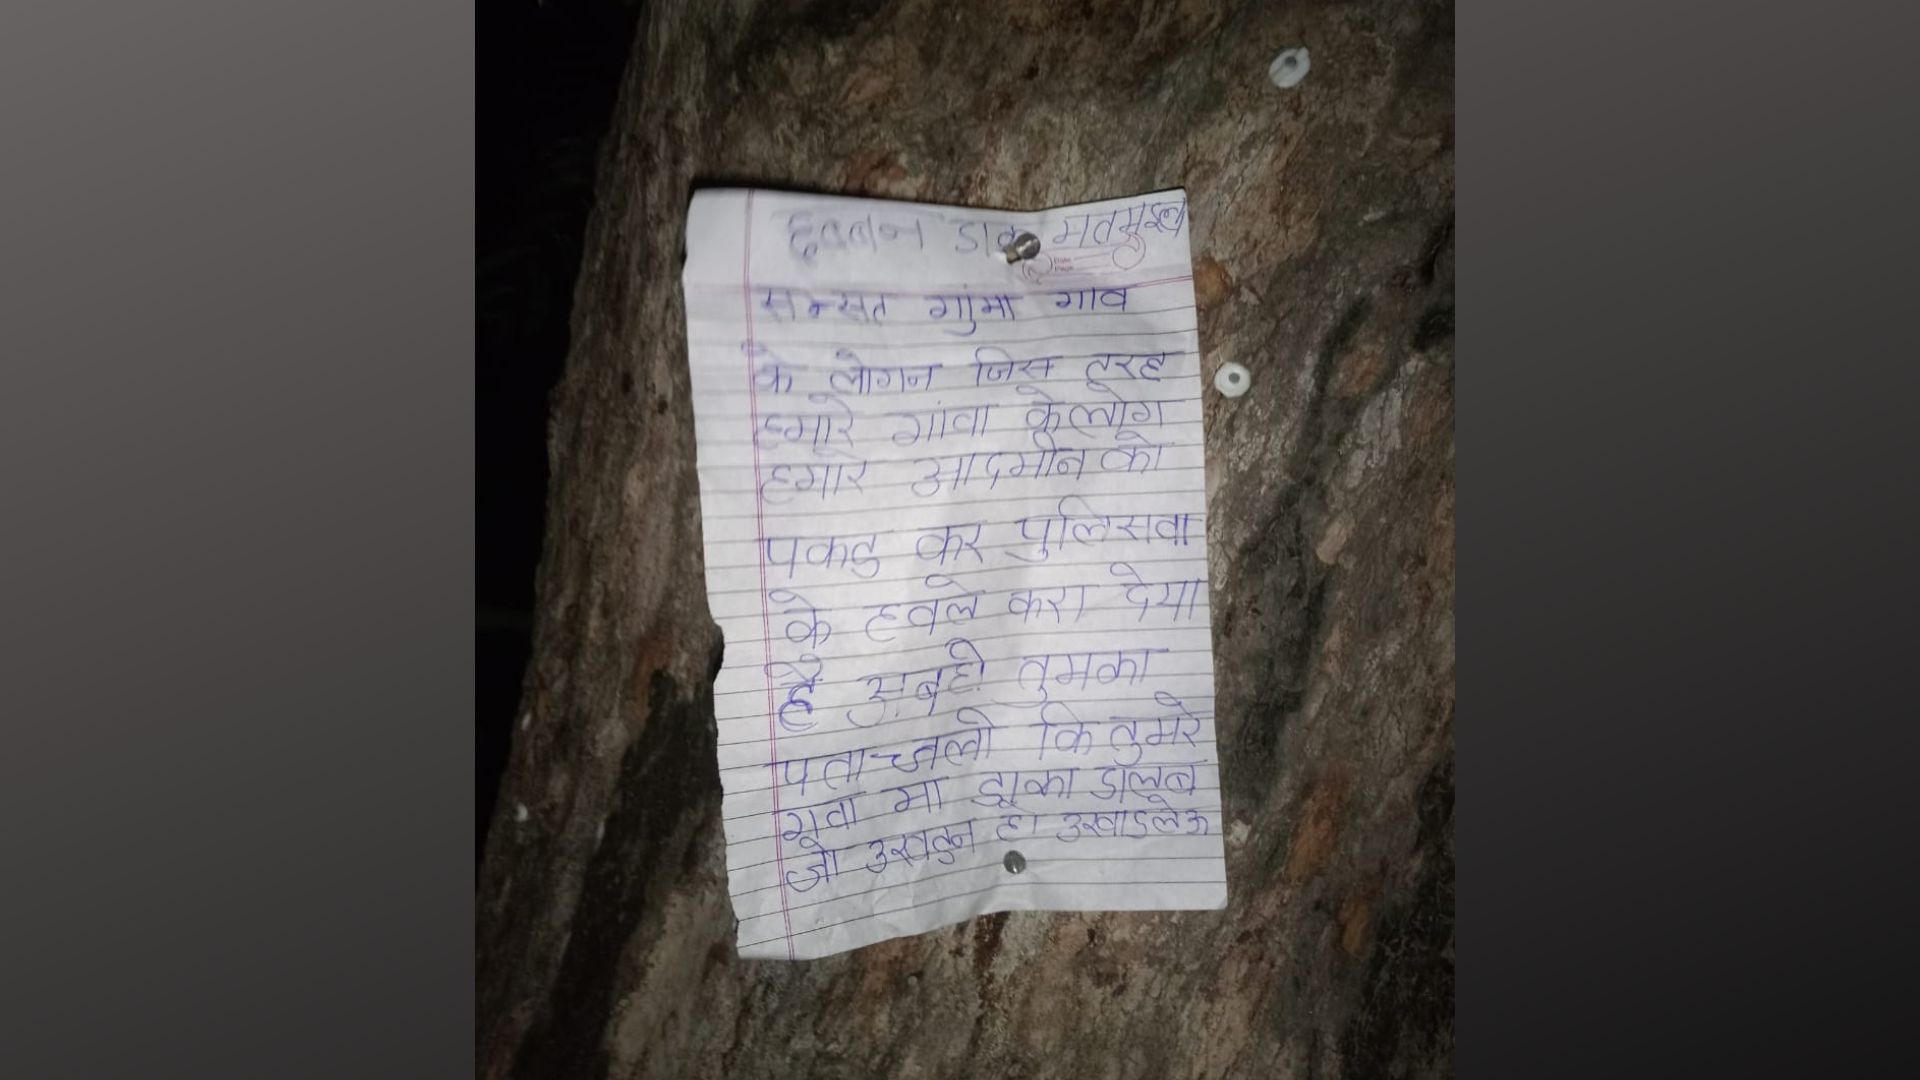 हब्बन डाकू मतमुइन
समस्त गुंमा गाव
के लोगन जिस तरह
हमारे गांवा के लोग
हमारे आदमीन को
पकड कर पुलिसवा
के हवले करा देया
है अबही तुमका
पता चली कि तुमरे
गावा मा डाका डालब
जो उखडन हो उखाडलेऊ